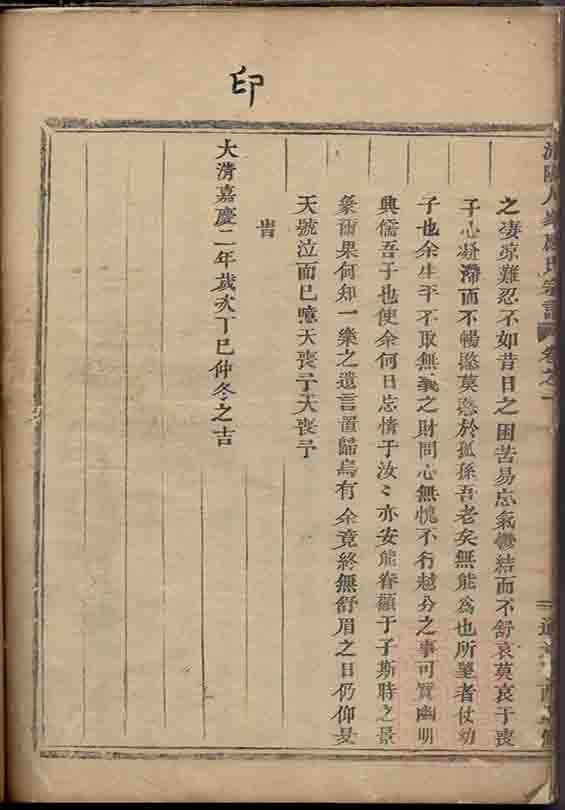 印
氏宗譜 卷之一
之凄凉難忍不如昔日之困苦易忘氣鬱結而不舒哀莫哀于喪
子心凝滯而不暢愍莫愍於孤孫吾老矣無能為也所望者仗幼
子也余生平不取無義之財問心無愧不行越分之事可質幽明
興儒吾子也使余何日忘情于汝〻亦安能眷顧于子斯時之景
象爾果何知一樂之遺言置歸烏有余竟終無舒眉之日仍仰旻
天號泣而已噫天喪予天喪予
旹
大淸嘉慶二年歲次丁巳仲冬之吉